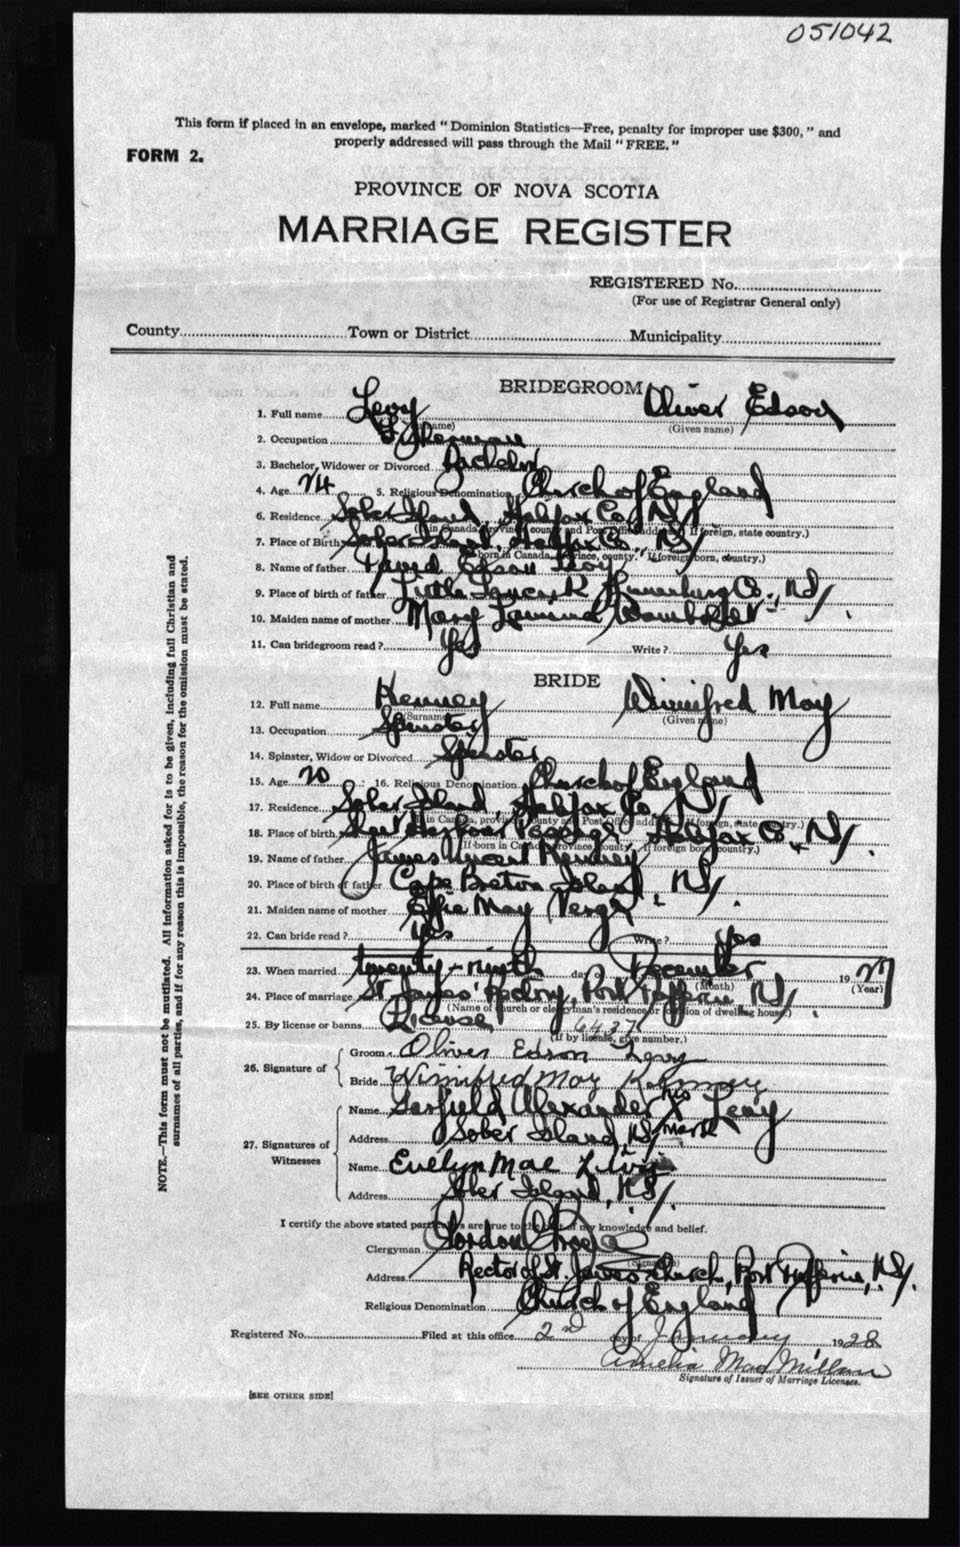 051042
This form if placed in an envelope, marked "Dominion Statistics—Free, penalty for improper use $300," and
properly addressed will pass through the Mail "FREE."
FORM 2.
PROVINCE OF NOVA SCOTIA
MARRIAGE REGISTER
REGISTERED No.
(For use of Registrar General only)
County Town or District Municipality
BRIDEGROOM
1. Full name Levy Oliver Edson
(Surname) (Given name)
2. Occupation Fisherman
3. Bachelor, Widower or Divorced Bachelor
4. Age 24 5. Religious Denomination Church of England
6. Residence Sober Island, Halifax Co., NS/
(If in Canada, province, county and Post Office address. If foreign, state country.)
7. Place of Birth Sober Island, Halifax Co., NS/
(If born in Canada, province, county. If foreign born, country.)
8. Name of father David Edson Levy
9. Place of birth of father Little Lunenburg Co., NS/.
10. Maiden name of mother Mary
11. Can bridegroom read? Yes Write? Yes
BRIDE
12. Full name Kenney Winnifred May
(Surname) (Given name)
13. Occupation Spinster
14. Spinster, Widow or Divorced Spinster
15. Age 20 16. Religious Denomination Church of England
17. Residence Sober Island, Halifax Co., NS/
(If in Canada, province, county and Post Office address. If foreign, state country.)
18. Place of birth Harbour Passage, Halifax Co., NS/.
(If born in Canada, province, county. If foreign born, country.)
19. Name of father James Vincent Kenney
20. Place of birth of father Cape Breton Island, NS/.
21. Maiden name of mother Effie May
22. Can bride read? Yes Write? Yes
23. When married twenty-ninth day of December 1927
(Month) (Year)
24. Place of marriage St. James' Rectory, Port Dufferin, NS/.
(Name of church or clergyman's residence or location of dwelling house.)
25. By license or banns License 6437
(If by license, give number.)
26. Signature of
Groom Oliver Edson Levy
Bride Winnifred May Kenney
27. Signatures of Witnesses
Name Garfield Alexander his X mark Levy
Address Sober Island, NS/
Name Evelyn Mae Levy
Address Sober Island, NS/.
I certify the above stated particulars are true to the best of my knowledge and belief.
Clergyman Gordon
(Signature)
Address Rector of St. James Church, Port Dufferin, NS/.
Religious Denomination Church of England
Registered No. Filed at this office 2nd day of January 1928
Amelia MacMillan
Signature of Issuer of Marriage Licenses.
[SEE OTHER SIDE]
NOTE.—This form must not be mutilated. All information asked for is to be given, including full Christian and
surnames of all parties, and if for any reason this is impossible, the reason for the omission must be stated.